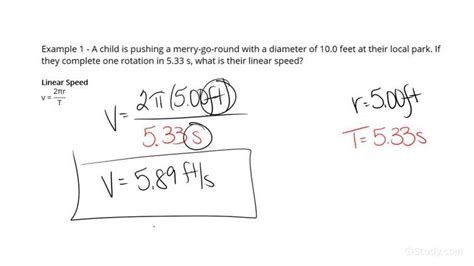 Example 1 - A child is pushing a merry-go-round with a diameter of 10.0 feet at their local park. If
they complete one rotation in 5.33 s, what is their linear speed?
Linear Speed
v = 2πr/T
V = 2π(5.00ft)/5.33s
r=5.00ft
T=5.33s
V=5.89 ft/s
Study.com